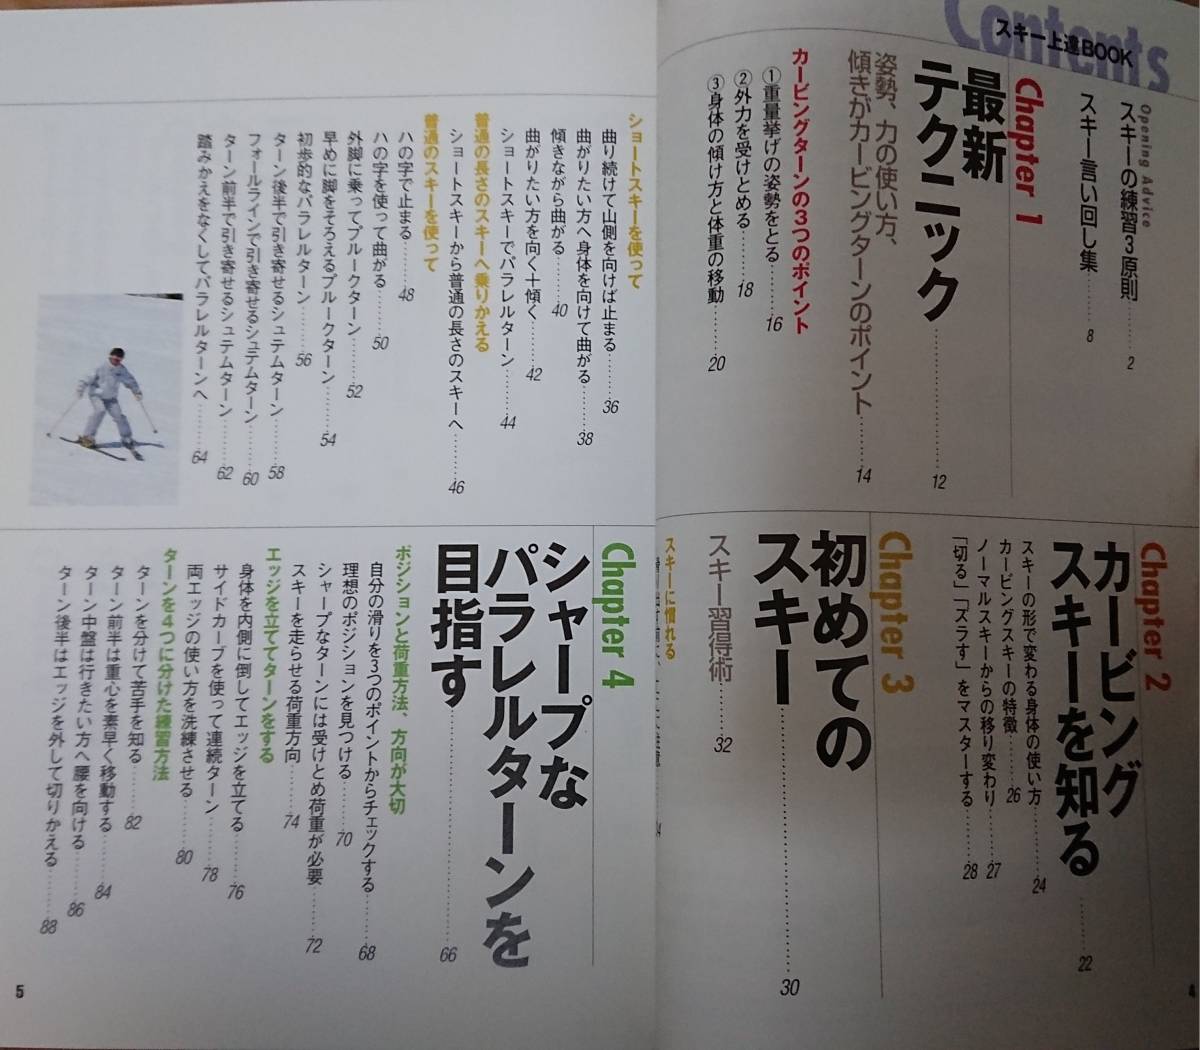 Contents
スキー上達BOOK
Opening Advice
スキーの練習3原則……2
スキー言い回し集……8
Chapter 1
最新
テクニック……12
姿勢、力の使い方、
傾きがカービングターンのポイント……14
カービングターンの3つのポイント
①重量挙げの姿勢をとる……16
②外力を受けとめる……18
③身体の傾け方と体重の移動……20
Chapter 2
カービング
スキーを知る……22
スキーの形で変わる身体の使い方……24
カービングスキーの特徴……26
ノーマルスキーからの移り変わり……27
「切る」「ズラす」をマスターする……28
Chapter 3
初めての
スキー……30
スキー習得術……32
スキーに慣れる
34
4
ショートスキーを使って
曲り続けて山側を向けば止まる……36
曲がりたい方へ身体を向けて曲がる……38
傾きながら曲がる……40
曲がりたい方を向く＋傾く……42
ショートスキーでパラレルターン……44
普通の長さのスキーへ乗りかえる
ショートスキーから普通の長さのスキーへ……46
普通のスキーを使って
ハの字で止まる……48
ハの字を使って曲がる……50
外脚に乗ってプルークターン……52
早めに脚をそろえるプルークターン……54
初歩的なパラレルターン……56
ターン後半で引き寄せるシュテムターン……58
フォールラインで引き寄せるシュテムターン……60
ターン前半で引き寄せるシュテムターン……62
踏みかえをなくしてパラレルターンへ……64
Chapter 4
シャープな
パラレルターンを
目指す……66
ポジションと荷重方法、方向が大切
自分の滑りを3つのポイントからチェックする……68
理想のポジションを見つける……70
シャープなターンには受けとめ荷重が必要……72
スキーを走らせる荷重方向……74
エッジを立ててターンをする
身体を内側に倒してエッジを立てる……76
サイドカーブを使って連続ターン……78
両エッジの使い方を洗練させる……80
ターンを4つに分けた練習方法
ターンを分けて苦手を知る……82
ターン前半は重心を素早く移動する……84
ターン中盤は行きたい方へ腰を向ける……86
ターン後半はエッジを外して切りかえる……88
5